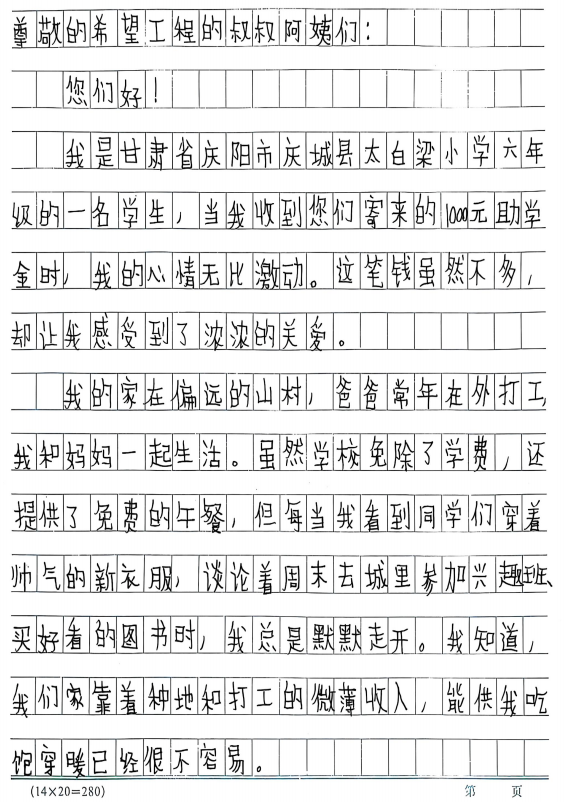 尊敬的希望工程的叔叔阿姨们：
您们好！
我是甘肃省庆阳市庆城县太白梁小学六年
级的一名学生，当我收到您们寄来的1000元助学
金时，我的心情无比激动。这笔钱虽然不多，
却让我感受到了浓浓的关爱。
我的家在偏远的山村，爸爸常年在外打工，
我和妈妈一起生活。虽然学校免除了学费，还
提供了免费的午餐，但每当我看到同学们穿着
帅气的新衣服，谈论着周末去城里参加兴趣班、
买好看的图书时，我总是默默走开。我知道，
我们家靠着种地和打工的微薄收入，能供我吃
饱穿暖已经很不容易。
(14×20=280) 第 页